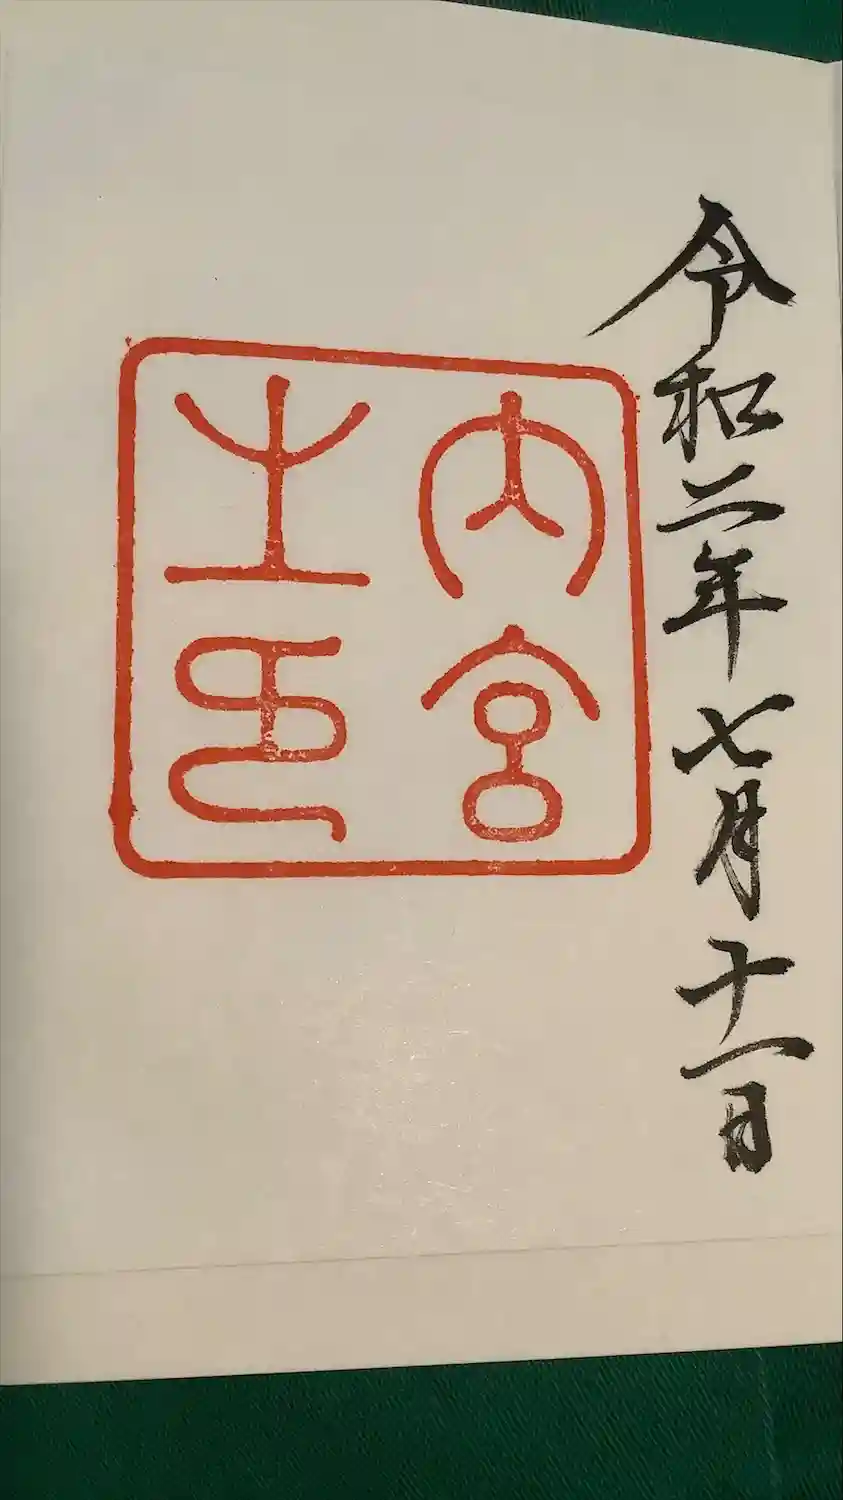 令和二年七月十一日
内宮
之印